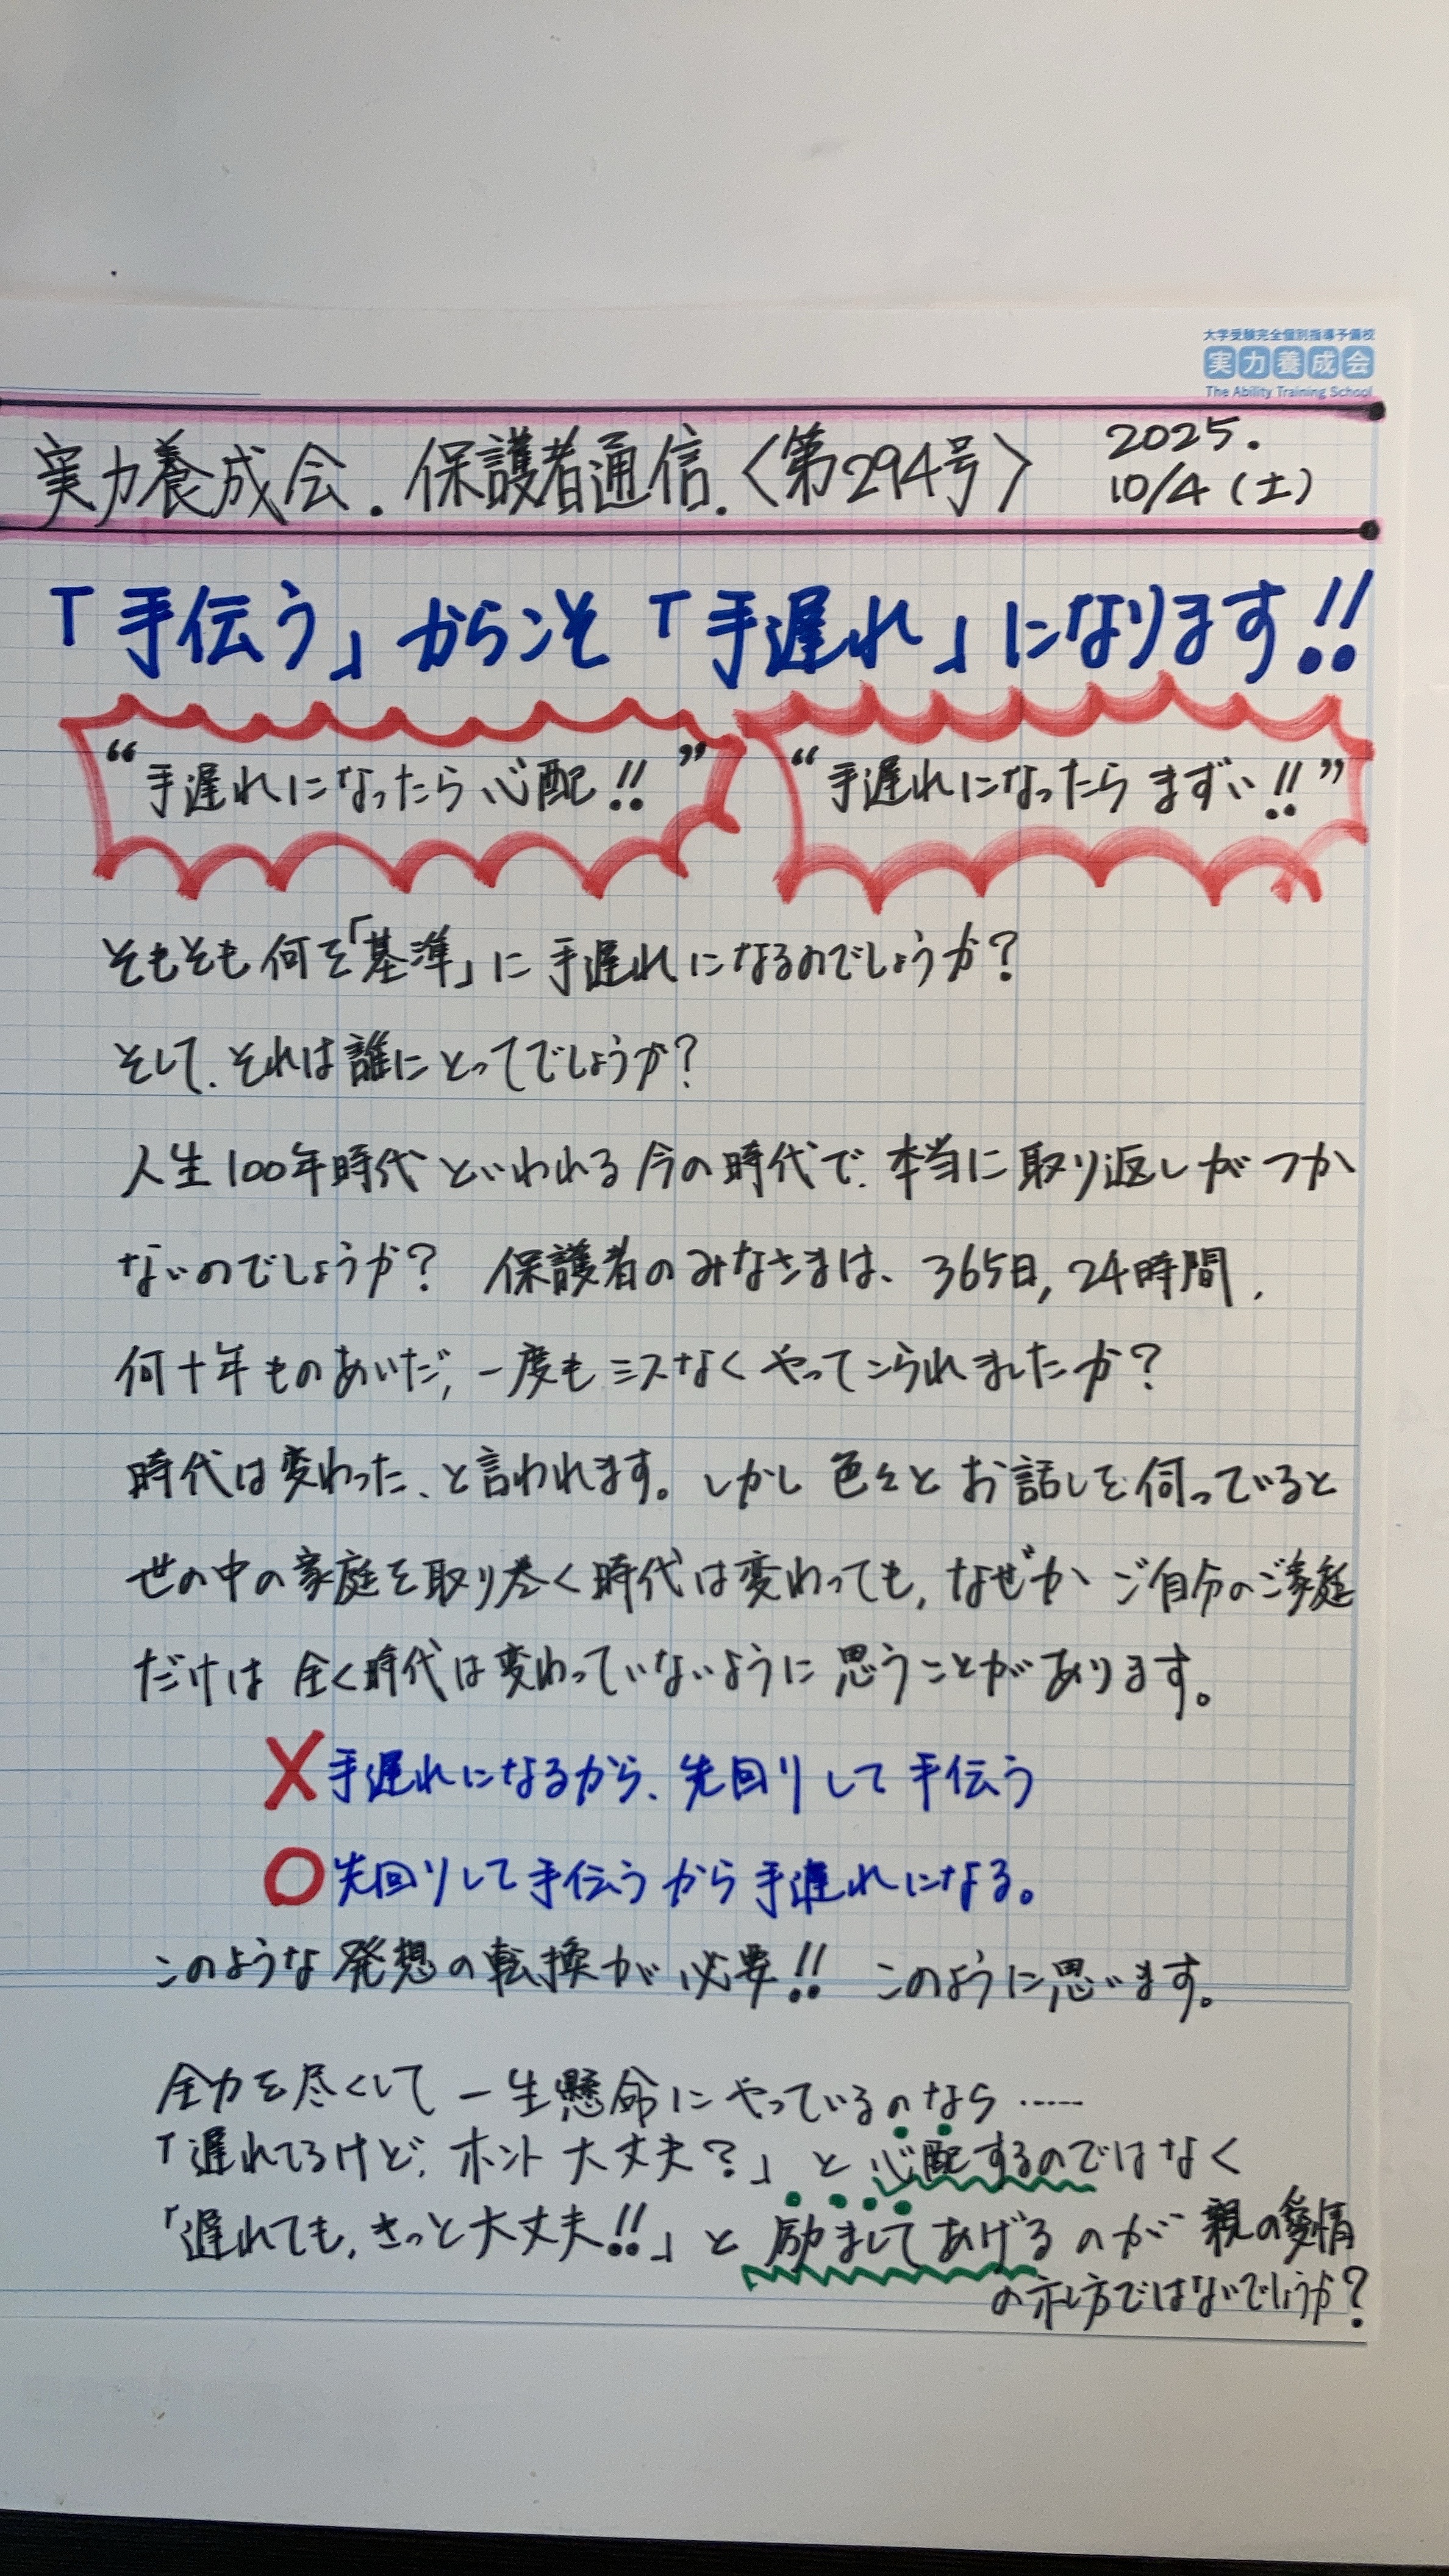 大学受験完全個別指導予備校
実力養成会
The Ability Training School
実力養成会.保護者通信.〈第294号〉 2025. 10/4(土)
「手伝う」からこそ「手遅れ」になります!!
“手遅れになったら心配!!” “手遅れになったらまずい!!”
そもそも何を「基準」に手遅れになるのでしょうか?
そして、それは誰にとってでしょうか?
人生100年時代といわれる今の時代で、本当に取り返しがつか
ないのでしょうか? 保護者のみなさまは、365日,24時間,
何十年ものあいだ,一度もミスなくやってこられましたか?
時代は変わった、と言われます。しかし色々とお話しを伺っていると
世の中の家庭を取り巻く時代は変わっても,なぜかご自分のご家庭
だけは全く時代は変わっていないように思うことがあります。
X手遅れになるから、先回りして手伝う
○先回りして手伝うから手遅れになる。
このような発想の転換が必要!! このように思います。
全力を尽くして一生懸命にやっているのなら……
「遅れてるけど、ホント大丈夫?」と心配するのではなく
「遅れても,きっと大丈夫!!」と励ましてあげるのが親の愛情
の示し方ではないでしょうか?